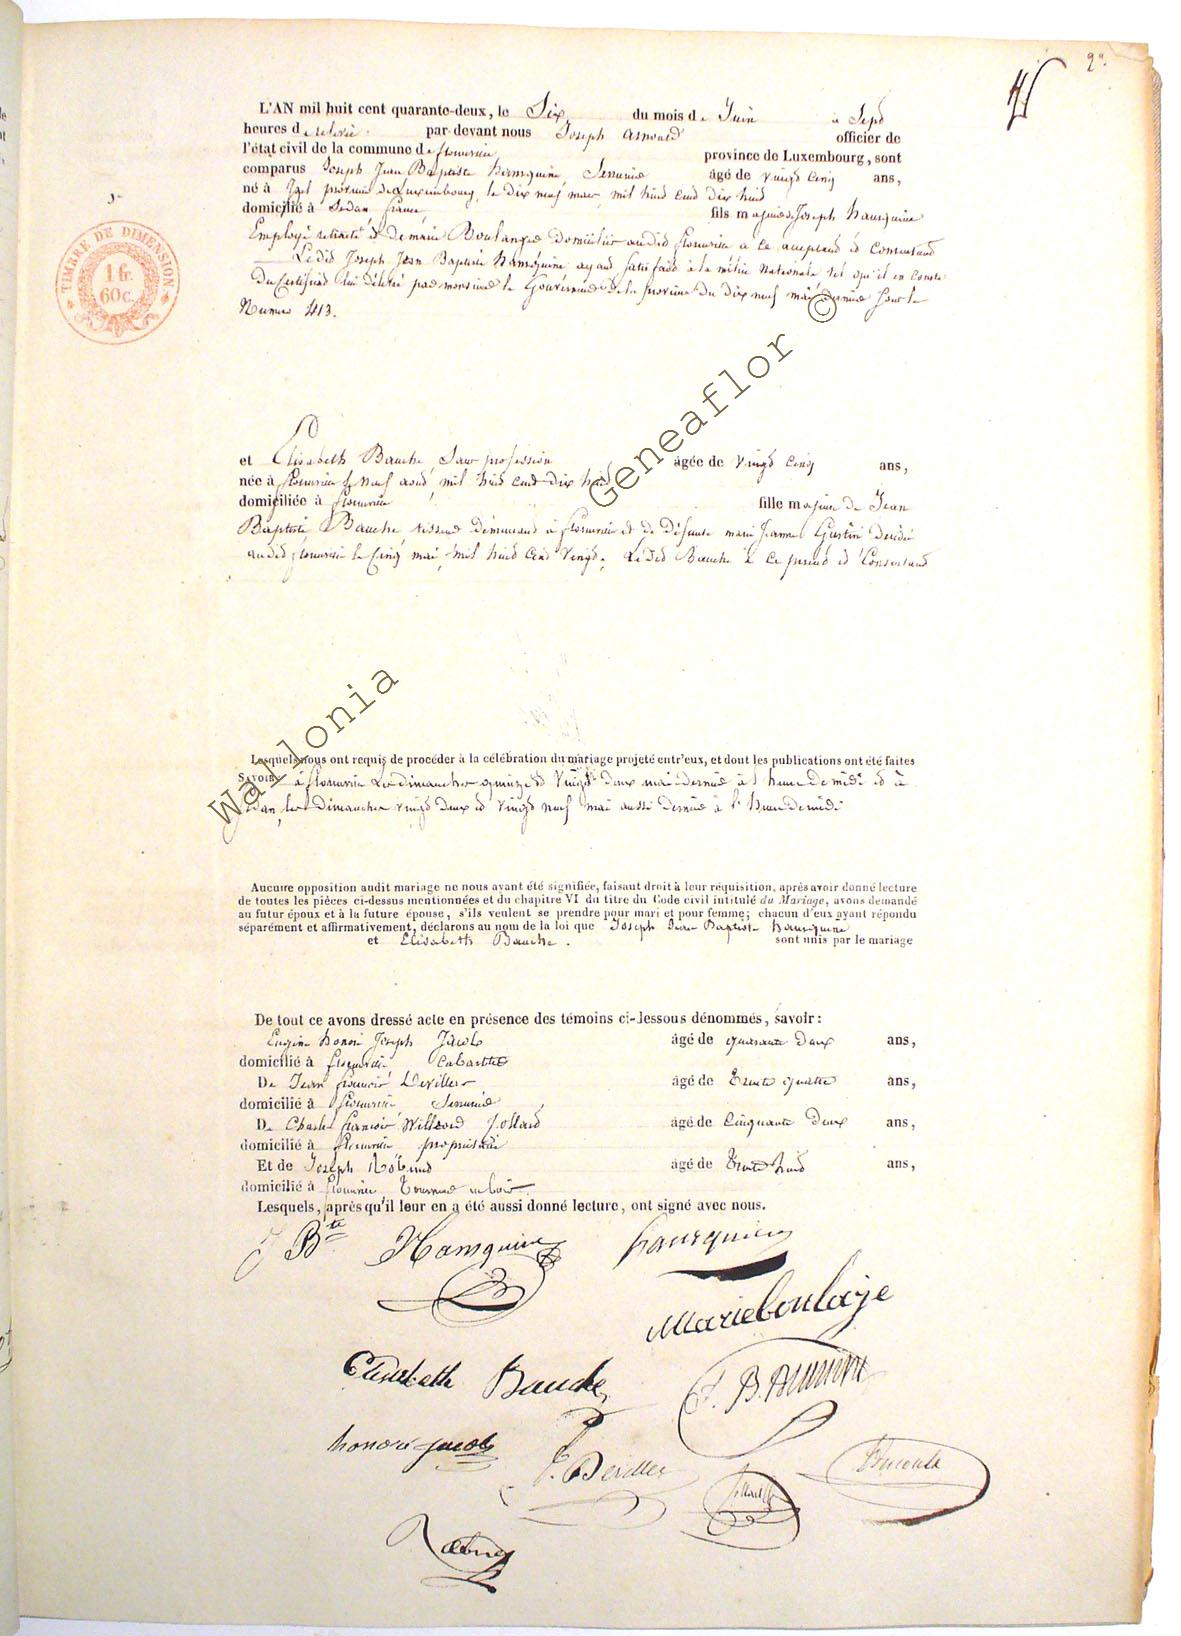 2e.
L'AN mil huit cent quarante-deux, le Six du mois de Juin à Sept
heures de relevée par devant nous Joseph Arnould officier de
l'état civil de la commune de florenville province de Luxembourg, sont
comparus Joseph Jean Baptiste Hansquine âgé de vingt cinq ans,
né à province de Luxembourg, le dix neuf mars mil huit cent dix huit
domicilié à Sedan, france, fils majeur de Joseph hansquine
Employé retraité et de marie Boulanger domiciliés audit florenville à ce acceptant et Consentant
Ledit Joseph Jean Baptiste Hansquine ayant satisfait à la milice Nationale tel qu'il en Conste
Du Certificat lui délivré par monsieur le Gouverneur de la province du dix neuf mai dernier sous le
Numero 413.
TIMBRE DE DIMENSION
1 fr.
60c.
et Elisabeth Bauche, Sans profession âgée de vingt Cinq ans,
née à florenville le Neuf aout, mil huit cent dix huit
domiciliée à florenville fille majeure de Jean
Baptiste Bauche demeurant à florenville et de Défunte marie Jeanne Gustin Décédée
audit florenville le Cinq mai, mil huit Cent vingt. Ledit Bauche à Ce présent et Consentant
Lesquels nous ont requis de procéder à la célébration du mariage projeté entr'eux, et dont les publications ont été faites
SAVOIR à florenville Les Dimanches quinze et Vingt deux mai Dernier à l'heure de midi et à
Sedan, les Dimanches vingt deux et vingt neuf mai aussi Dernier à l'heure de midi
Aucune opposition audit mariage ne nous ayant été signifiée, faisant droit à leur réquisition, après avoir donné lecture
de toutes les pièces ci-dessus mentionnées et du chapitre VI du titre du Code civil intitulé du Mariage, avons demandé
au futur époux et à la future épouse, s'ils veulent se prendre pour mari et pour femme; chacun d'eux ayant répondu
séparément et affirmativement, déclarons au nom de la loi que Joseph Jean Baptiste Hansquine
et Elisabeth Bauche. sont unis par le mariage
De tout ce avons dressé acte en présence des témoins ci-dessous dénommés, savoir:
Joseph Jacob âgé de quarante deux ans,
domicilié à florenville Cabaretier
De Jean françois Deviller âgé de trente quatre ans,
domicilié à florenville
De Charles françois âgé de Cinquante deux ans,
domicilié à florenville propriétaire
Et de Joseph âgé de trente huit ans,
domicilié à florenville
Lesquels, après qu'il leur en a été aussi donné lecture, ont signé avec nous.
J Bte Hansquine hansquine
Marie boulaije
Elisabeth Bauche
honoré jacob
Wallonia Geneaflor ©